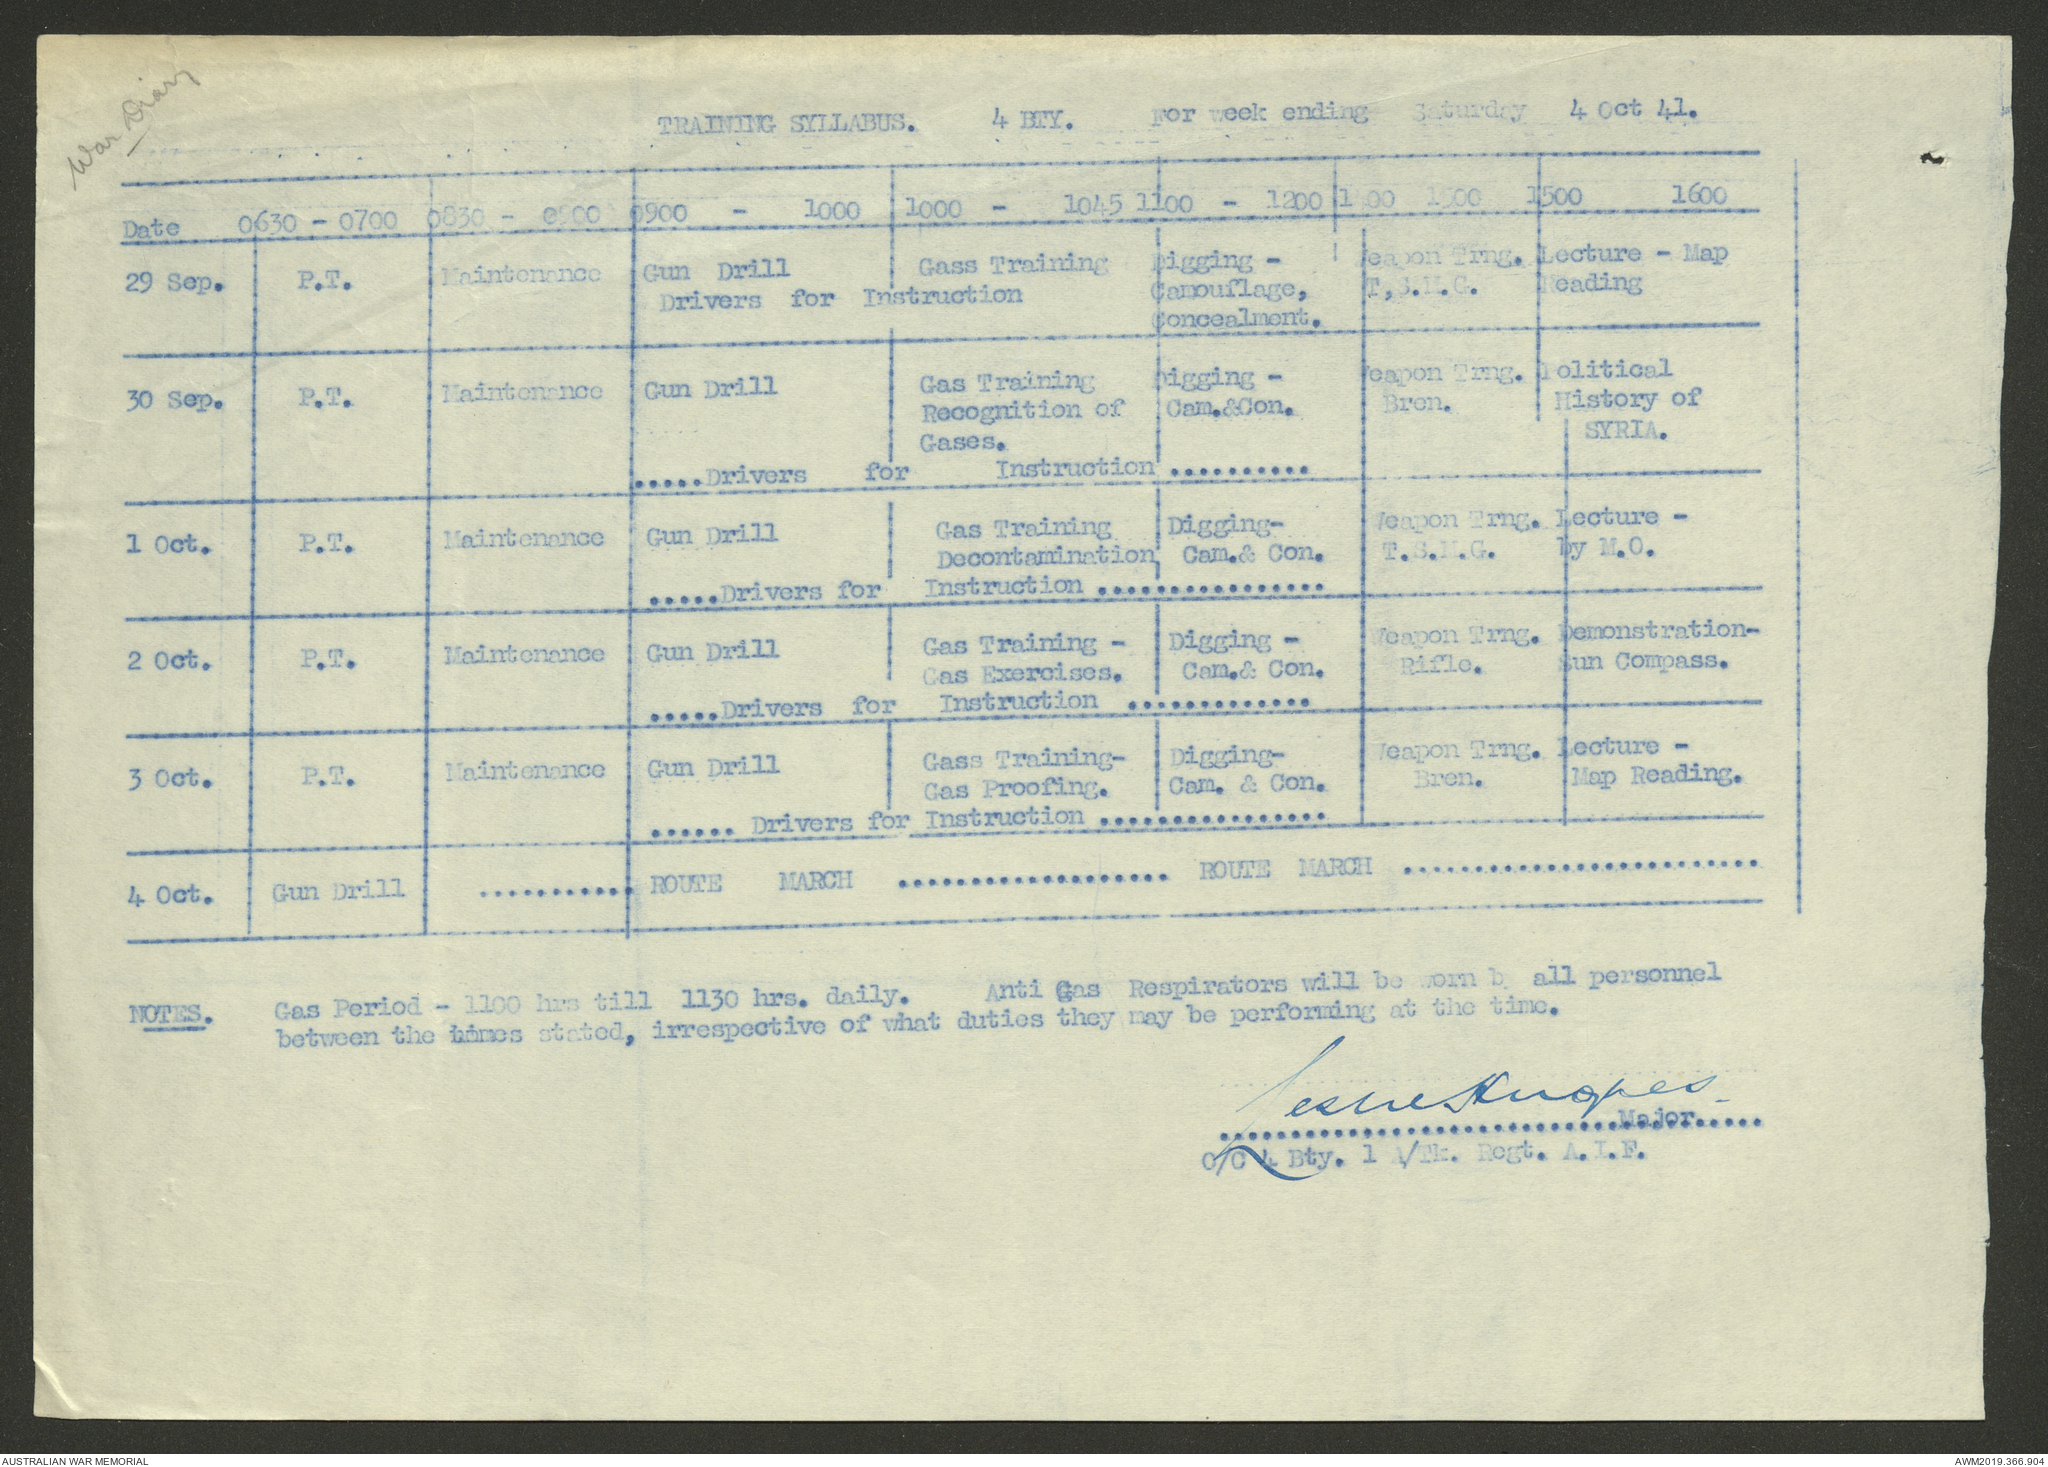 War Diary
TRAINING SYLLABUS. 4 BTY. For week ending Saturday 4 Oct 41.
Date 0630 - 0700 0830 - 0900 0900 - 1000 1000 - 1045 1100 - 1200 1500 1600
29 Sep. P.T. Maintenance Gun Drill Gass Training Digging - Weapon Trng. Lecture - Map
Drivers for Instruction Camouflage, T,S.M.G. Reading
Concealment.
30 Sep. P.T. Maintenance Gun Drill Gas Training Digging - Weapon Trng. Political
Recognition of Cam.&Con. Bren. History of
Gases. SYRIA.
.....Drivers for Instruction ..........
1 Oct. P.T. Maintenance Gun Drill Gas Training Digging- Weapon Trng. Lecture -
Decontamination Cam.& Con. T.S.M.G. by M.O.
.....Drivers for Instruction ................
2 Oct. P.T. Maintenance Gun Drill Gas Training - Digging - Weapon Trng. Demonstration-
Gas Exercises. Cam.& Con. Rifle. Sun Compass.
.....Drivers for Instruction .............
3 Oct. P.T. Maintenance Gun Drill Gass Training- Digging- Weapon Trng. Lecture -
Gas Proofing. Cam. & Con. Bren. Map Reading.
...... Drivers for Instruction ................
4 Oct. Gun Drill ........... ROUTE MARCH ................... ROUTE MARCH .........................
NOTES. Gas Period - 1100 hrs till 1130 hrs. daily. Anti Gas Respirators will be worn by all personnel
between the times stated, irrespective of what duties they may be performing at the time.
Leslie Hughes
Major
O/C 4 Bty. 1 A/Tk. Regt. A.I.F.
AUSTRALIAN WAR MEMORIAL
AWM2019.366.904